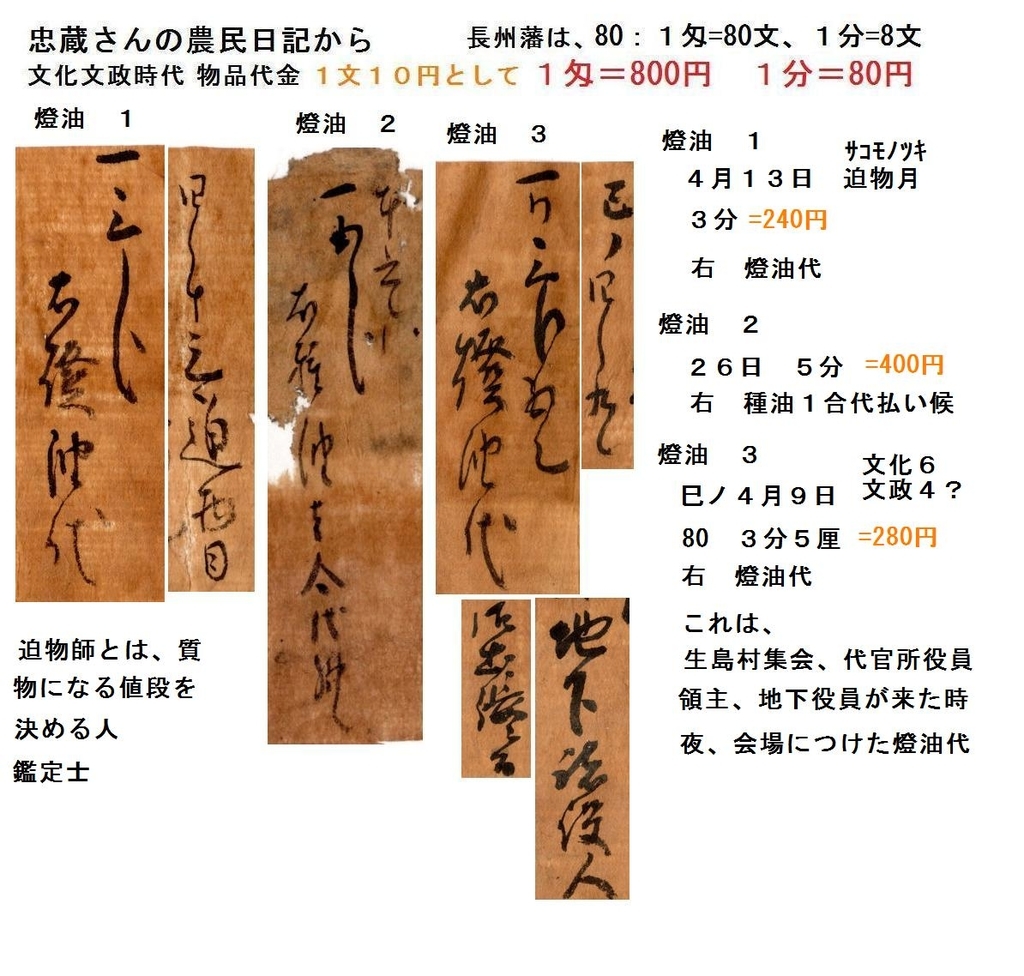 忠蔵さんの農民日記から
長州藩は、80：１匁=80文、１分=8文
文化文政時代 物品代金 １文１０円として １匁＝800円　１分＝80円
燈油　１
燈油　２
燈油　３
右燈油代
地下諸役人
燈油　１
サコモノツキ
４月１３日　迫物月
３分 =240円
右　燈油代
燈油　２
２６日　５分　=400円
右　種油１合代払い候
燈油　３
文化６
巳ノ４月９日　文政４？
80　３分５厘　=280円
右　燈油代
これは、
生島村集会、代官所役員
領主、地下役員が来た時
夜、会場につけた燈油代
迫物師とは、質
物になる値段を
決める人
鑑定士